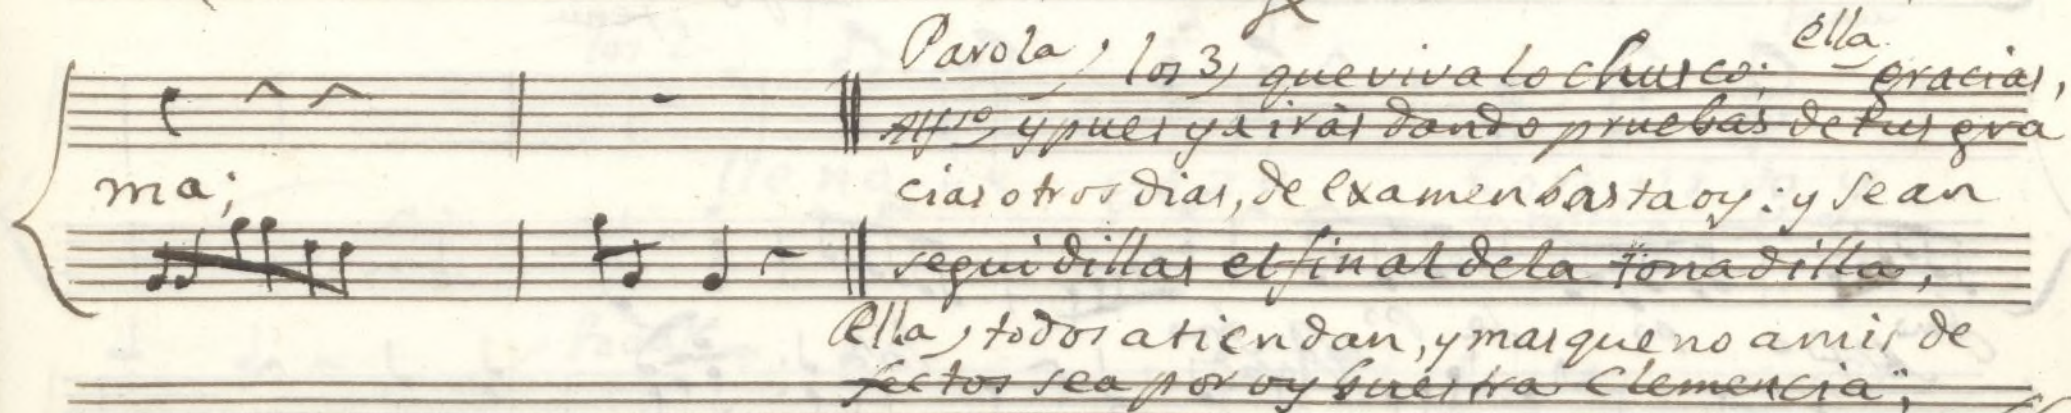 Parola, los 3, que viva lo chusco; ella gracias,
Alfso, y pues ya iràs dando pruebas de tus gra
ma;
cias otros dias, de examen basta oy: y sean
seguidillas el final de la tonadilla,
Ella, todos atiendan, y mas que no a mis de
fectos sea por oy buestra Clemencia;